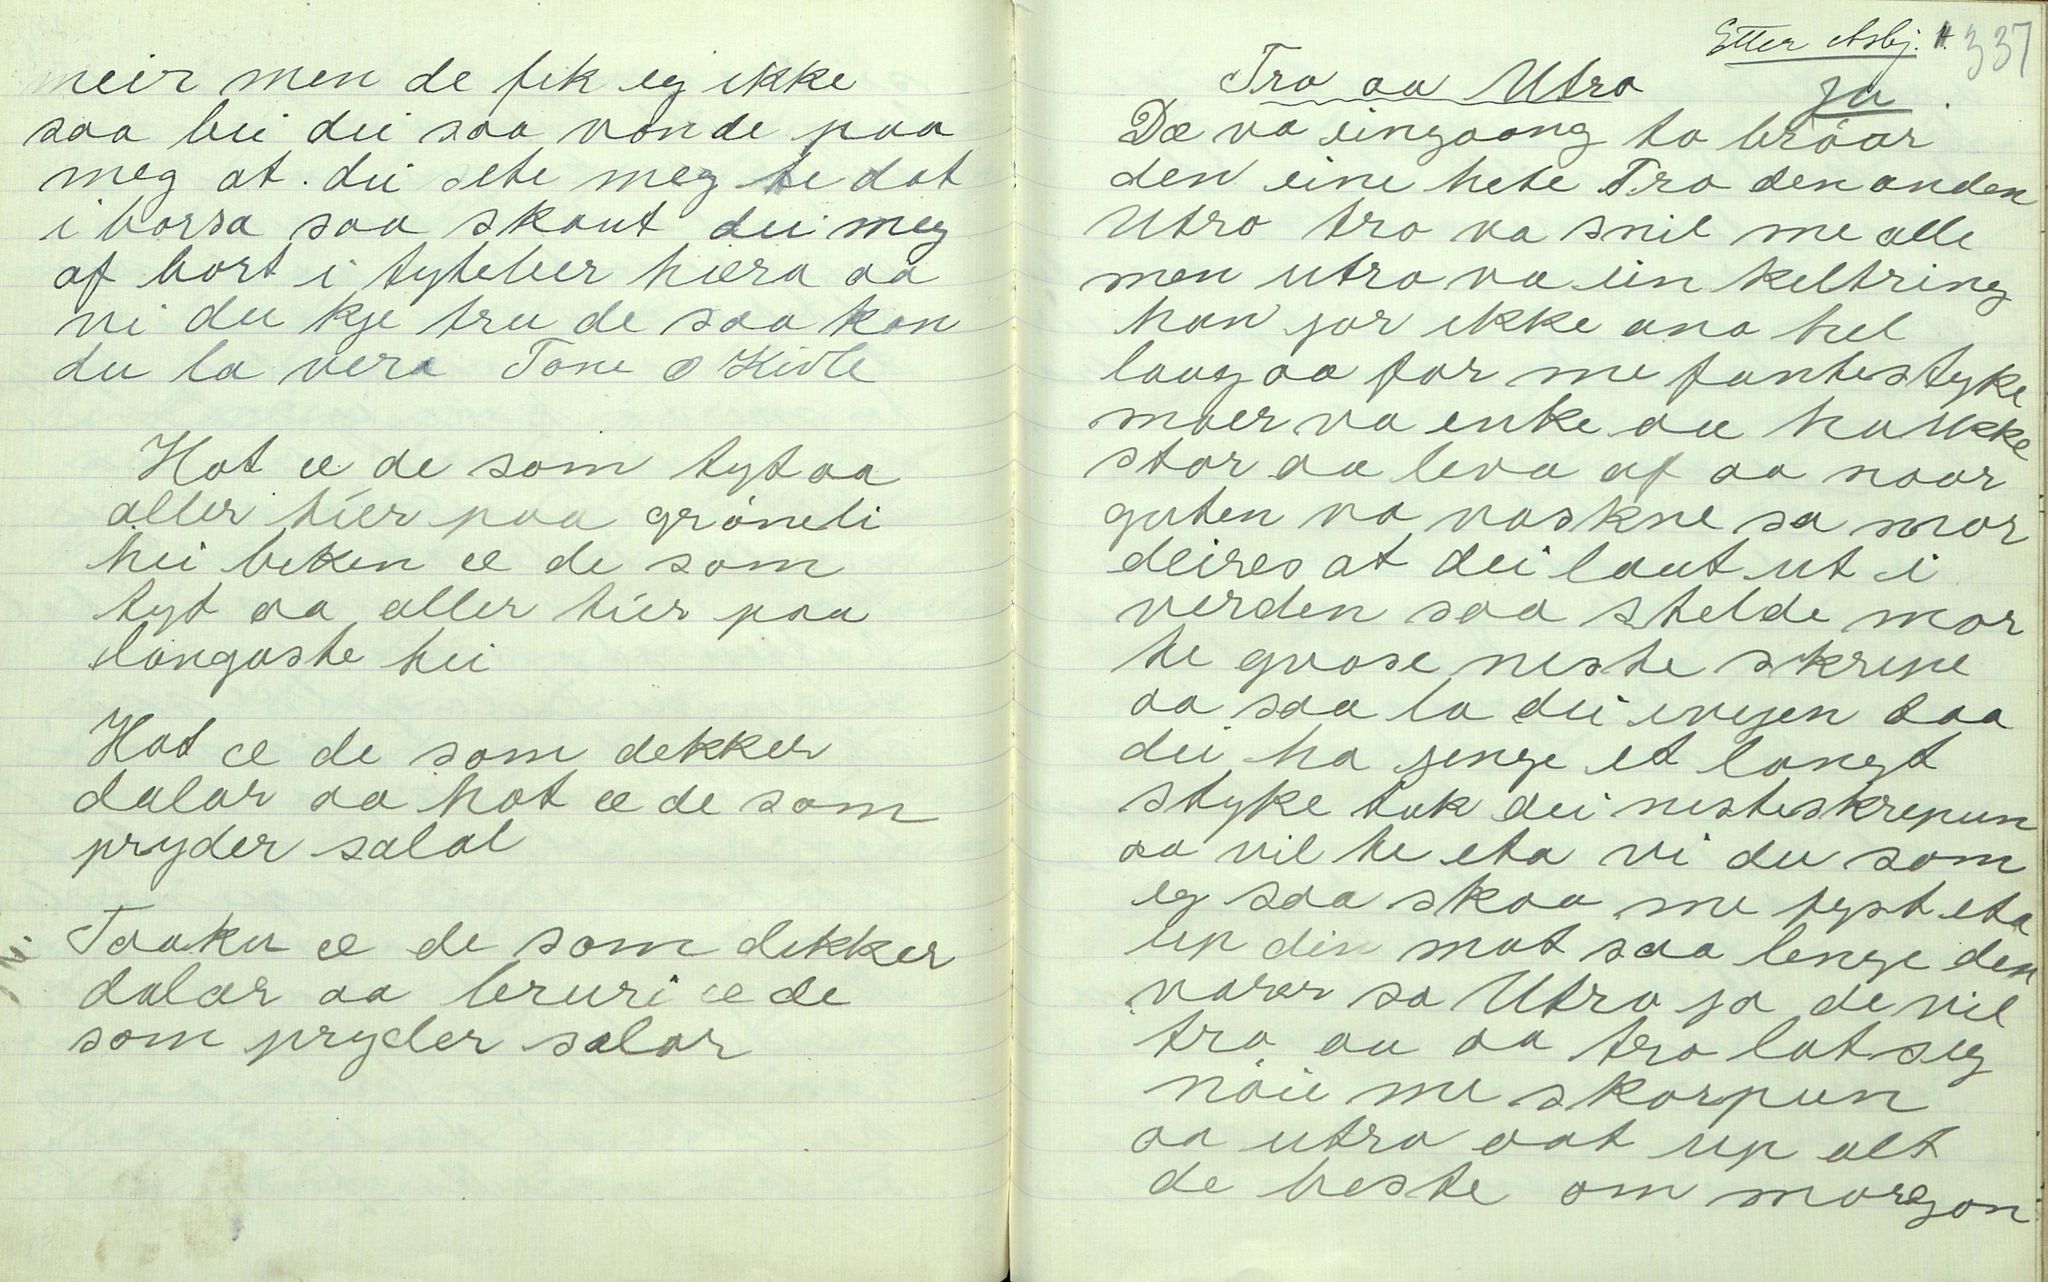 meir men de fik eg ikke
saa bei dei saa vonde paa
meg at dei sete meg te dat
i borsa saa skaut dei meg
af bort i tyteber hæra aa
vi du kje tru de saa kan
du la vera Tone O Kivle
Hot æ de som tyt aa
aller tier paa gröneli
hei beken æ de som
tyt aa aller tier paa
langaste hei
Hot æ de som dekker
dalar aa hot æ de som
pryder salal
Taaku æ de som dekker
dalar aa bruri æ de
som pryder salar
Etter Asbj. 337
Tro aa Utro ja
Dæ va eingaang to bröar
den eine hete Tro den anden
Utro tro va snil me alle
men utro va ein keltring
han jor ikke ana hel
laag aa for me fantestyke
moer va enke aa ha ikke
stor aa leva af aa naar
guten va vaskne sa mor
deires at dei laut ut i
verden saa stelde mor
te qvase neste skrepe
aa saa la dei ivejen daa
dei ha jenge et langt
styke tok dei nesteskrepun
aa vil te eta vi du som
eg saa skaa me fyst eta
up din mat saa lenge den
varer sa Utro ja de vil
tro aa aa tro lot seg
nöie me skorpun
aa utro aat up alt
de beste om moregon